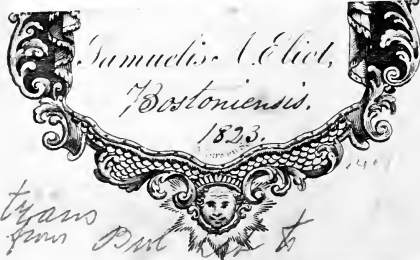 Samuelis A. Eliot,
Bostoniensis.
1823.
trans
from
to